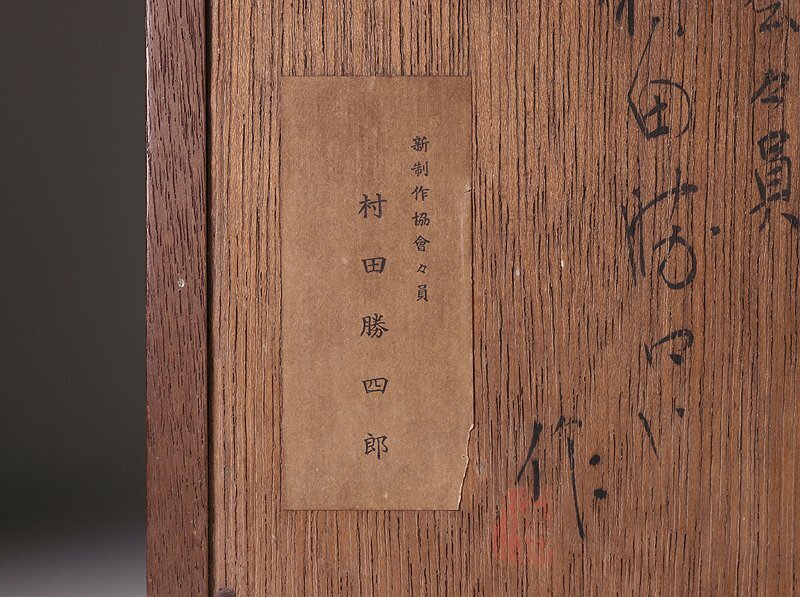 会々員
村田勝四郎
作
新制作協會々員
村田勝四郎